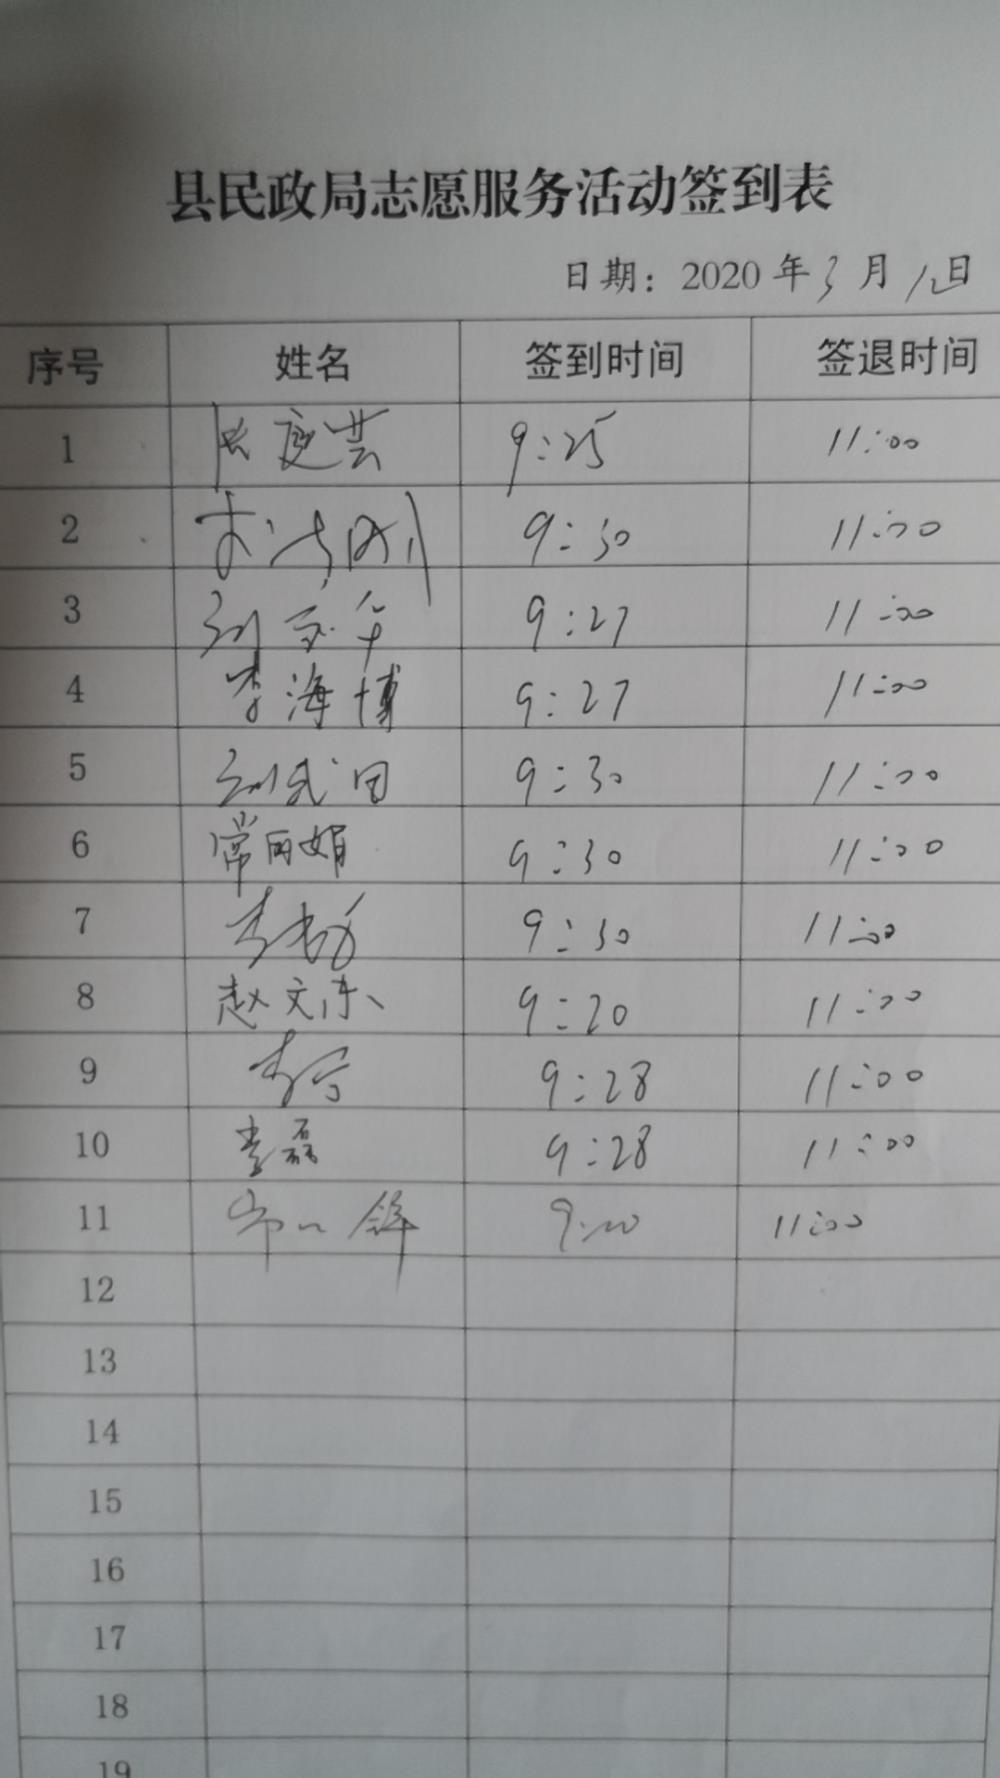 县民政局志愿服务活动签到表
日期：2020年3月12日
序号 姓名 签到时间 签退时间
1 9:25 11:00
2 9:30 11:00
3 9:27 11:00
4 李海博 9:27 11:00
5 9:30 11:00
6 常丽娟 9:30 11:00
7 9:30 11:00
8 赵文东 9:20 11:00
9 李宁 9:28 11:00
10 李磊 9:28 11:00
11 11:00
12
13
14
15
16
17
18
19